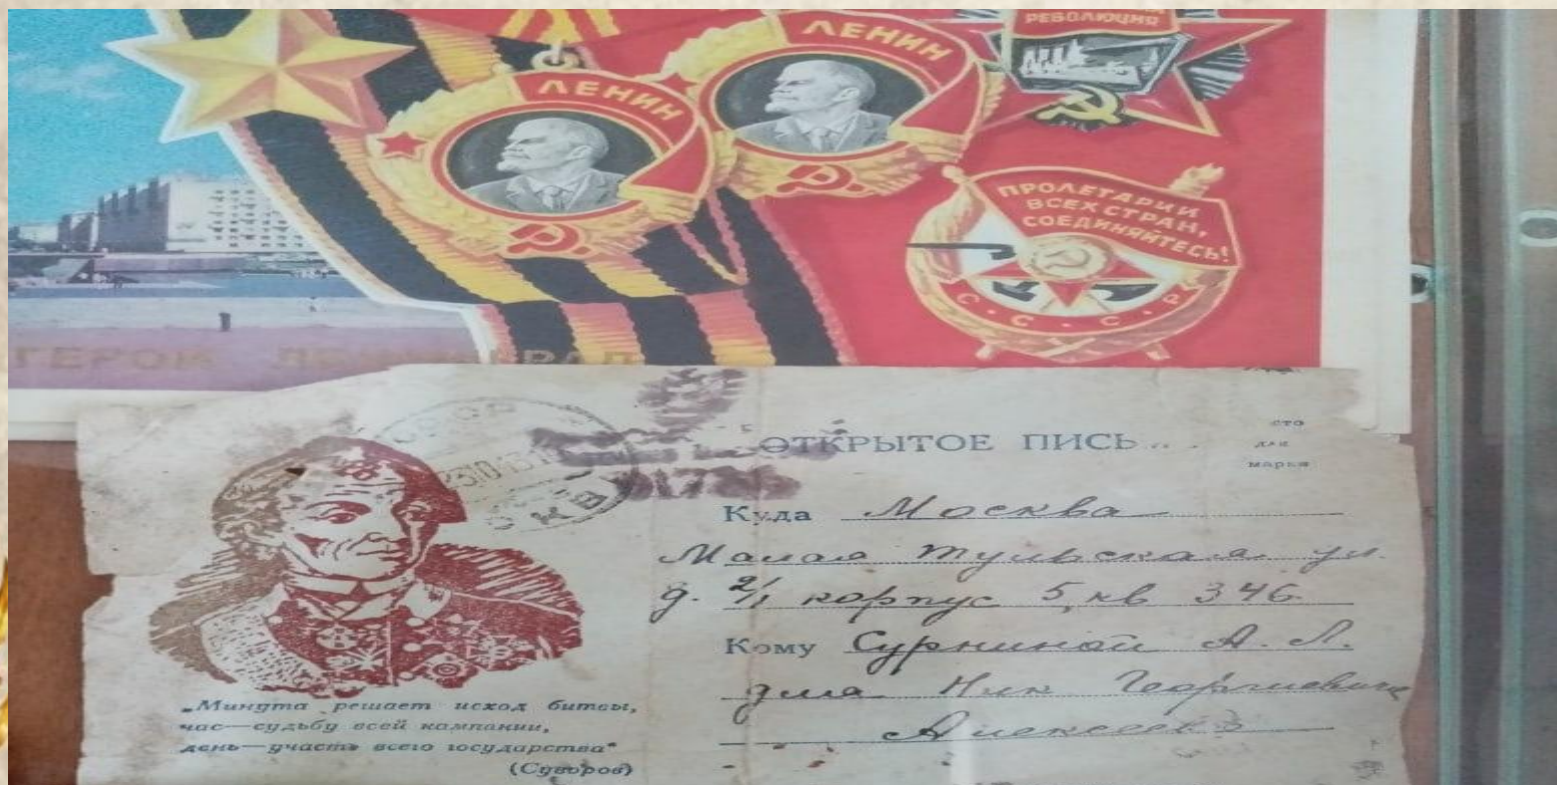 РЕВОЛЮЦИЯ
ЛЕНИН
ЛЕНИН
ПРОЛЕТАРИИ
ВСЕХ СТРАН,
СОЕДИНЯЙТЕСЬ!
С·С·С·Р
ГЕРОЯ
ОТКРЫТОЕ ПИСЬ
марки
Куда Москва
Малая Тульская ул.
д. 2/1 корпус 5, кв 346
Кому Сурниной А. Л.
для Ник Георгиевича
Алексеева
„Минута решает исход битвы,
час—судьбу всей кампании,
день—участь всего государства“
(Суворов)